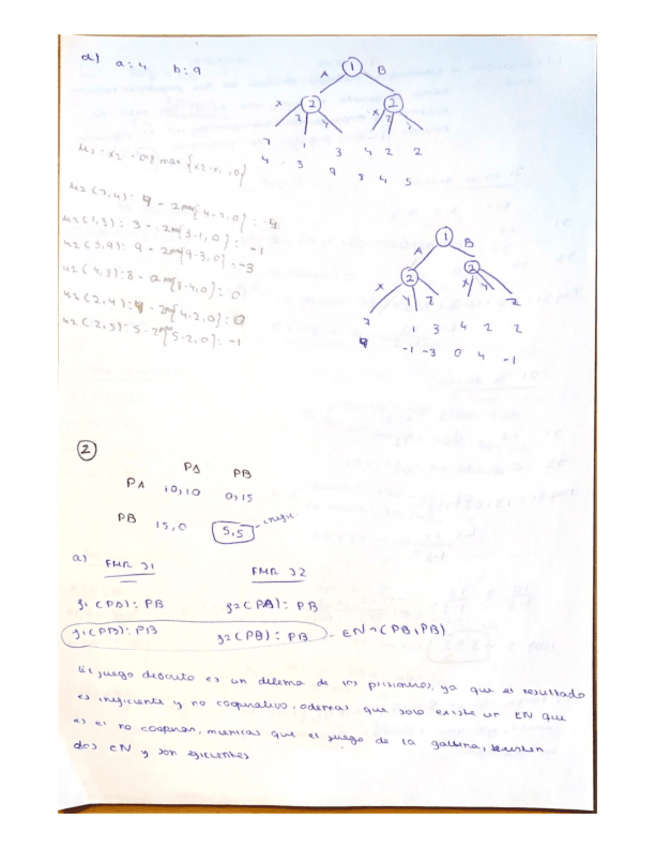 d) a:4 b:9
1
A B
2 2
x z y x z y
7 1 3 4 2 2
4 3 9 8 4 5
u2(1,3): 3 - 2max{3-1,0}: -1
u2(3,9): 9 - 2max{9-3,0}: -3
u2(4,8): 8 - 2max{8-4,0}: 0
u2(2,5): 5 - 2max{5-2,0}: -1
1
A B
2 2
x y z x y z
7 1 3 4 2 2
-1 -3 0 4 -1
2
PA PB
PA 10,10 0,15
PB 15,0 5,5
a) FMR J1 FMR J2
J1(PA): PB J2(PA): PB
J1(PB): PB J2(PB): PB - EN→(PB,PB)
El juego descrito es un dilema de los prisioneros, ya que el resultado
es ineficiente y no cooperativo, además que solo existe un EN que
es el no cooperar, mientras que el juego de la gallina, existen
dos EN y son eficientes